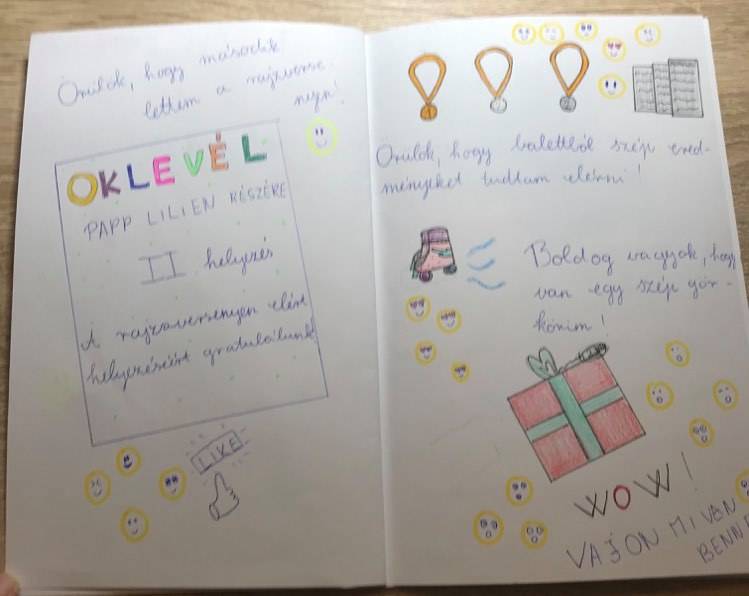 Örülök, hogy második
lettem a rajzverse-
nyen!
OKLEVÉL
PAPP LILIEN RÉSZÉRE
II helyezés
A rajzversenyen elért
helyezéséért gratulálunk!
LIKE
Örülök, hogy balettból szép ered-
ményeket tudtam elérni!
Boldog vagyok, hogy
van egy szép gör-
kórim!
WOW!
VAJON MI VAN
BENNE